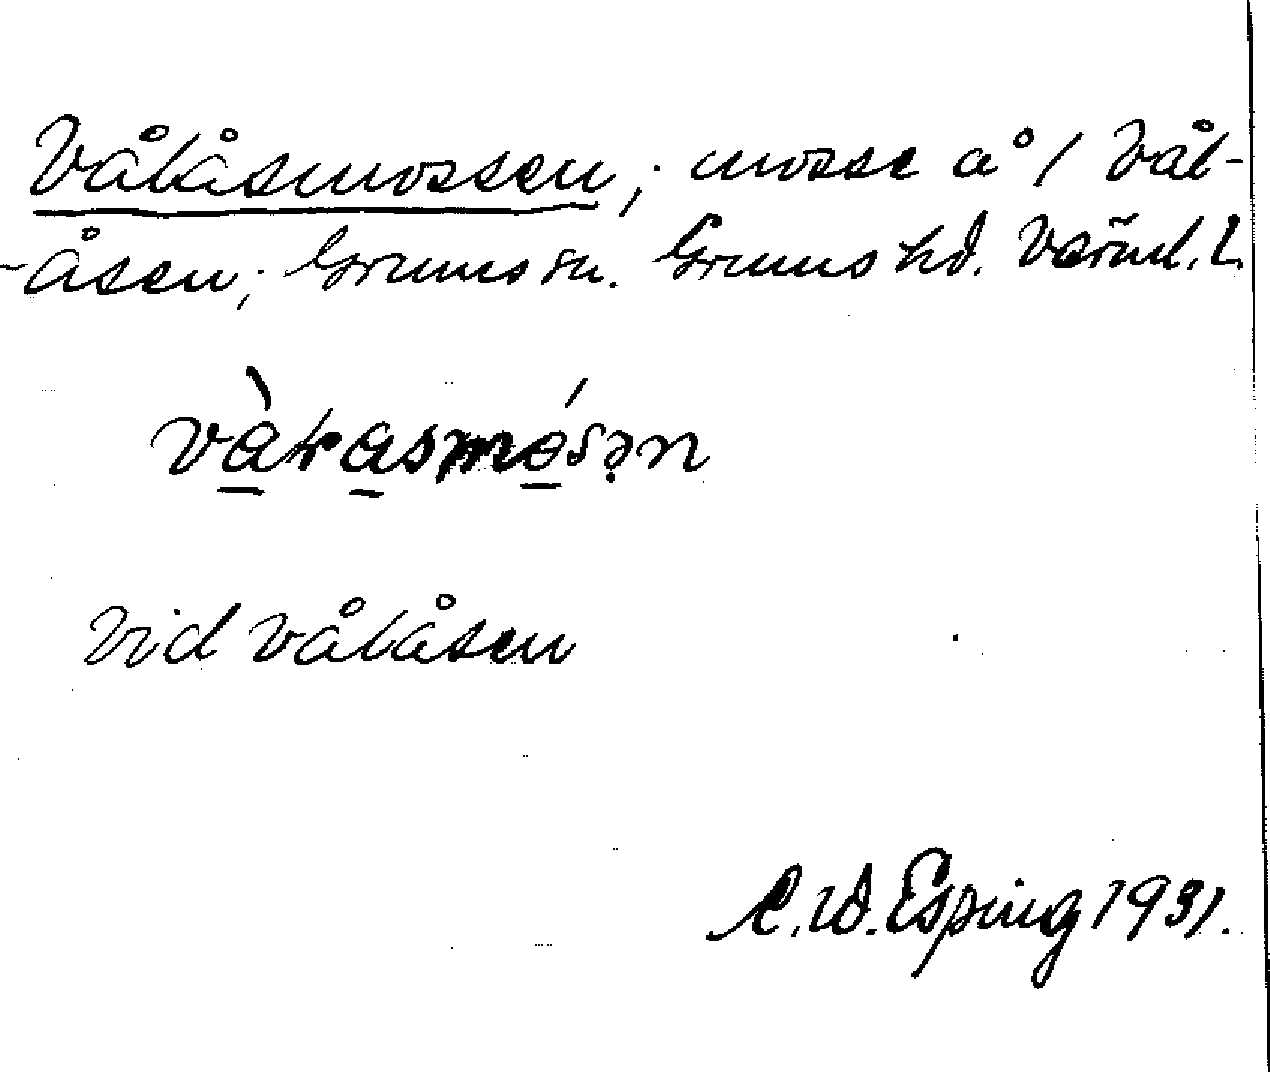 Vålåsmossen; mosse å 1 Vål-
-åsen; Grums sn. Grums hd. Värml. l.
vàlasmósən
Vid Vålåsen
C. W. Esping 1931.